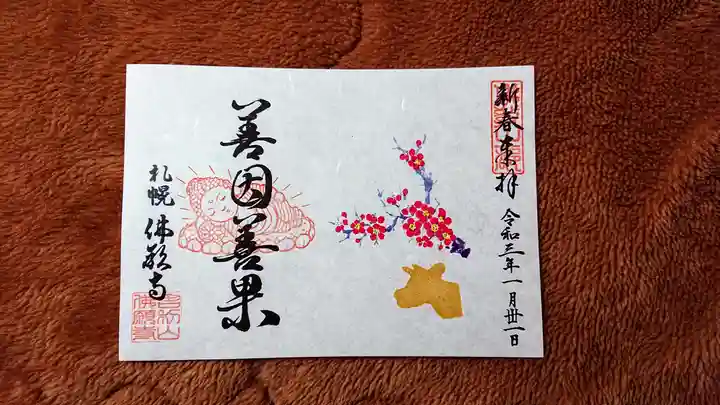 新春奉拝
令和三年一月卅一日
善因善果
札幌佛願寺